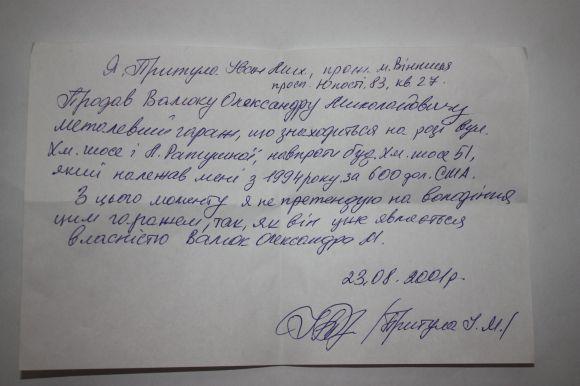 Я, Притула Іван Мих., прож. м. Вінниця
просп. Юності, 83, кв. 27.
Продав Валюку Олександру Миколайовичу
металевий гараж, що знаходиться на розі вул.
Хм. шосе і Л. Ратушної, навпроти буд. Хм. шосе 51,
який належав мені з 1994 року за 600 дол. США.
З цього моменту я не претендую на володіння
цим гаражем, так, як він уже являється
власністю Валюк Олександра М.
23.08.2001р.
/Притула І.М./